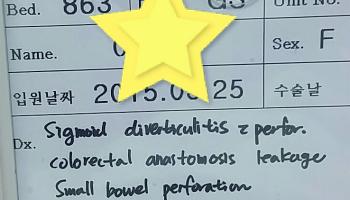 Bed. 863 Unit No.
Name. Sex. F
입원날짜 2015.0 25 수술날
Dx. Sigmoid diverticulitis c̄ perfor.
colorectal anastomosis leakage
Small bowel perforation